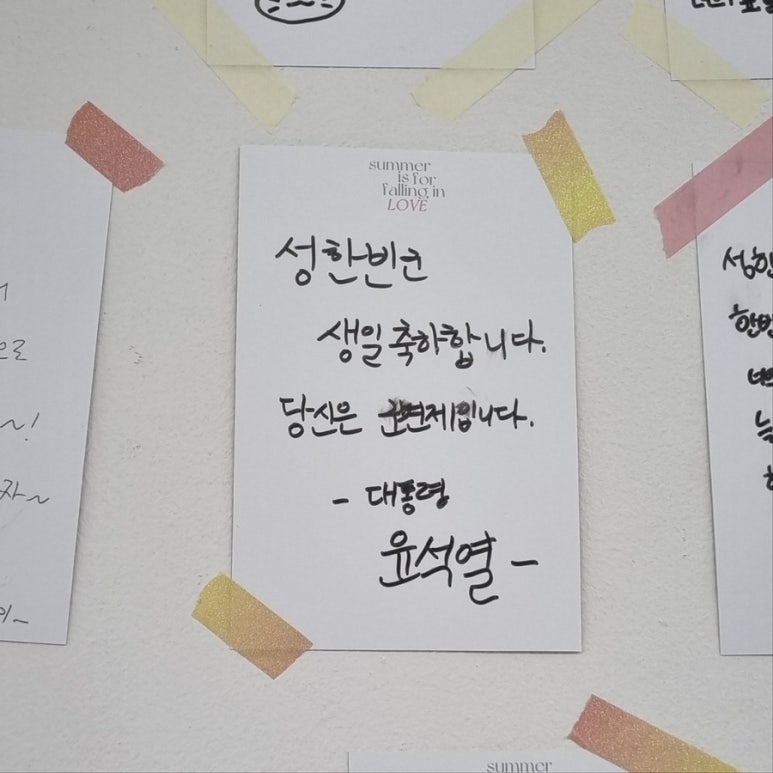 summer
is for
falling in
LOVE
성한빈군
생일축하합니다.
당신은 군면제입니다.
- 대통령
윤석열 -
으로
~!
자~
성한
한빈
summer